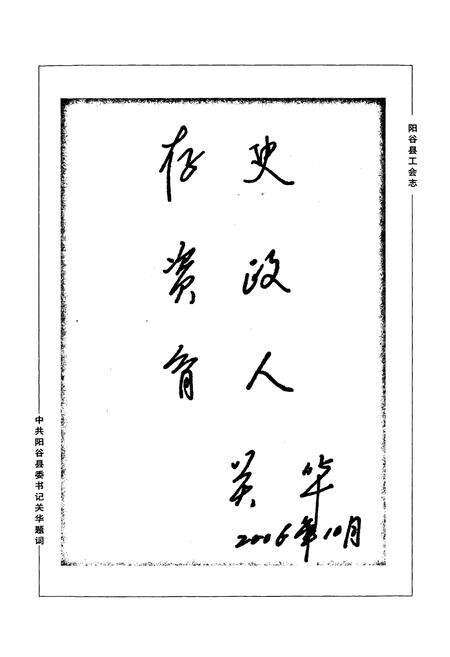 阳谷县工会志
存史
资政
育人
关华
2006年10月
中共阳谷县委书记关华题词